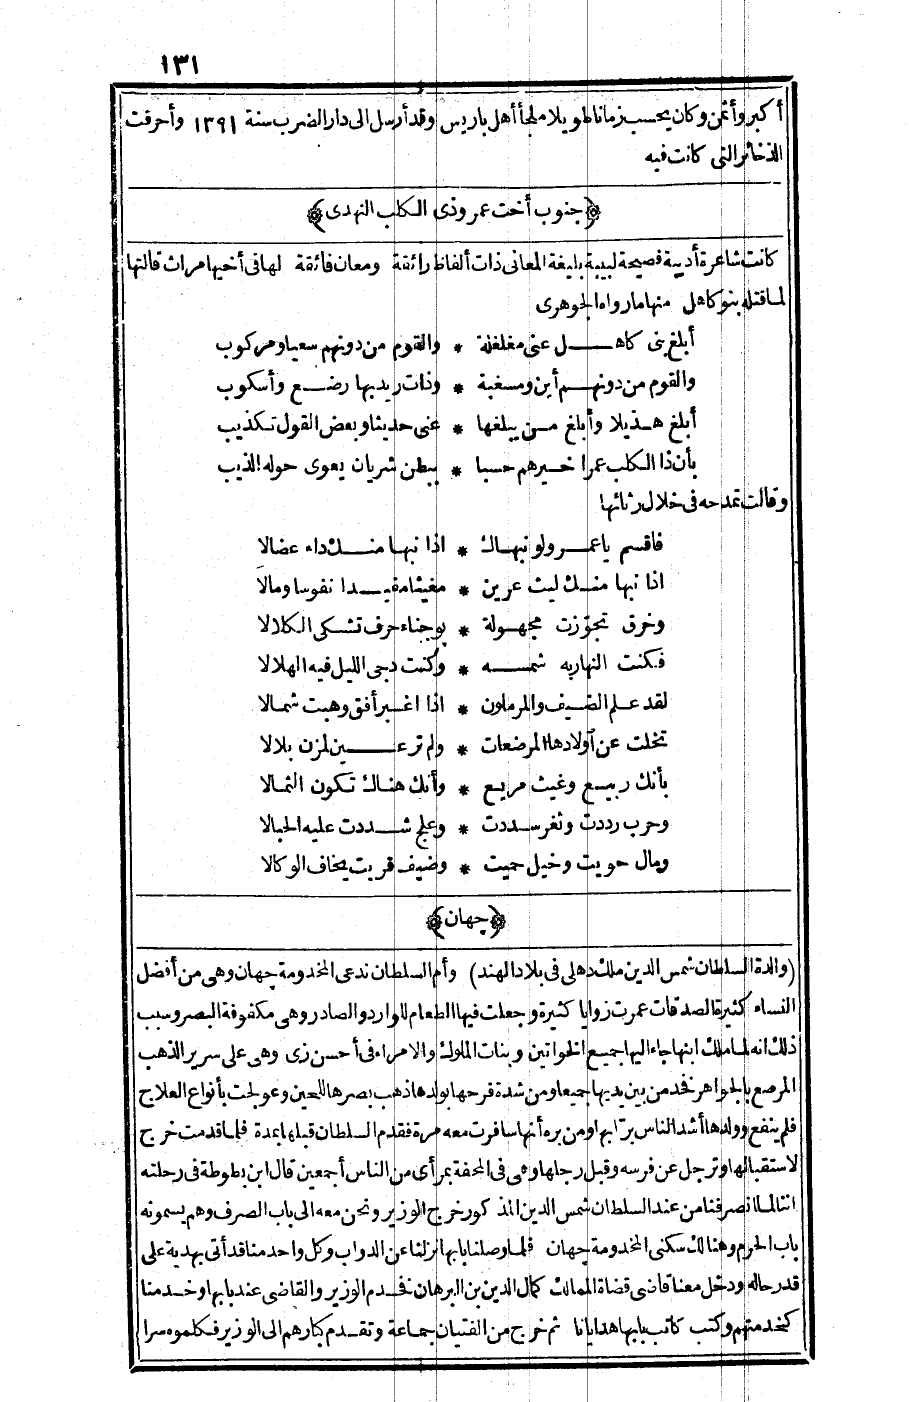 ١٣١
أكبر وأثمن وكان يحسب زمانا طويلا ملجأ أهل باريس وقد أرسل الى دار الضرب سنة ١٣٩١ وأحرقت
الذخائر التى كانت فيه
﴿جنوب أخت عمرو ذى الكلب النهدى﴾
كانت شاعرة أديبة فصيحة لبيبة بليغة المعانى ذات ألفاظ رائقة ومعان فائقة لها فى أخيها مراث قالتها
لما قتله بنو كاهل منها ما رواه الجوهرى
أبلغ بنى كاهـــل عنى مغلغلة * والقوم من دونهم سعيا ومركوب
والقوم من دونهــم أين ومسغبة * وذات ريد بها رضــع وأسكوب
أبلغ هــذيلا وأبلغ مــن يبلغها * عنى حديثا وبعض القول تكذيب
بأن ذا الكلب عمرا خــيرهم حسبا * ببطن شريان يعوى حوله الذيب
وقالت تمدحه فى خلال رثائها
فاقسم يا عمــرو لو نبهاك * اذا نبها منــك داء عضالا
اذا نبها منــك ليث عرين * مغيثا مفيــدا نفوسا ومالا
وخرق تجوّزت مجهــولة * بوجناء حرف تشكى الكلالا
فكنت النهار به شمـــسه * وكنت دجى الليل فيه الهلالا
لقد علــم الضيف والمرملون * اذا اغــبر أفق وهبت شمالا
تخلت عن أولادها المرضعات * ولم تر عـــين لمزن بلالا
بأنك ربيــع وغيث مريع * وأنك هناك تكون الثمالا
وحرب رددت وثغر سددت * وعلج شــددت عليه الحبالا
ومال حويت وخيل حميت * وضيف قريت يخاف الوكالا
﴿جهان﴾
(والدة السلطان شمس الدين ملك دهلى فى بلاد الهند) وأم السلطان ندعى المخدومة جهان وهى من أفضل
النساء كثيرة الصدقات عمرت زوايا كثيرة وجعلت فيها الطعام للوارد والصادر وهى مكفوفة البصر وسبب
ذلك انه لما ملك ابنها جاء اليها جميع الخواتين وبنات الملوك والامراء فى أحسن زى وهى على سرير الذهب
المرصع بالجواهر فخدمن بين يديها جميعا ومن شدة فرحها بولدها ذهب بصرها للحين وعولجت بأنواع العلاج
فلم ينفع وولدها أشد الناس برّا بها ومن بره أنها سافرت معه مرة فقدم السلطان قبلها بمدة فلما قدمت خرج
لاستقبالها وترجل عن فرسه وقبل رجلها وهى فى المحفة بمرأى من الناس أجمعين قال ابن بطوطة فى رحلته
اننا لما انصرفنا من عند السلطان شمس الدين المذكور خرج الوزير ونحن معه الى باب الصرف وهم يسمونه
باب الحرم وهنالك سكنى المخدومة جهان فلما وصلنا بابها نزلنا عن الدواب وكل واحد منا قد أتى بهدية على
قدر حاله ودخل معنا قاضى قضاة الممالك كمال الدين بن البرهان فخدم الوزير والقاضى عند بابها وخدمنا
كخدمتهم وكتب كاتب بابها هدايانا ثم خرج من الفتيان جماعة وتقدم كبارهم الى الوزير فكلموه سرا